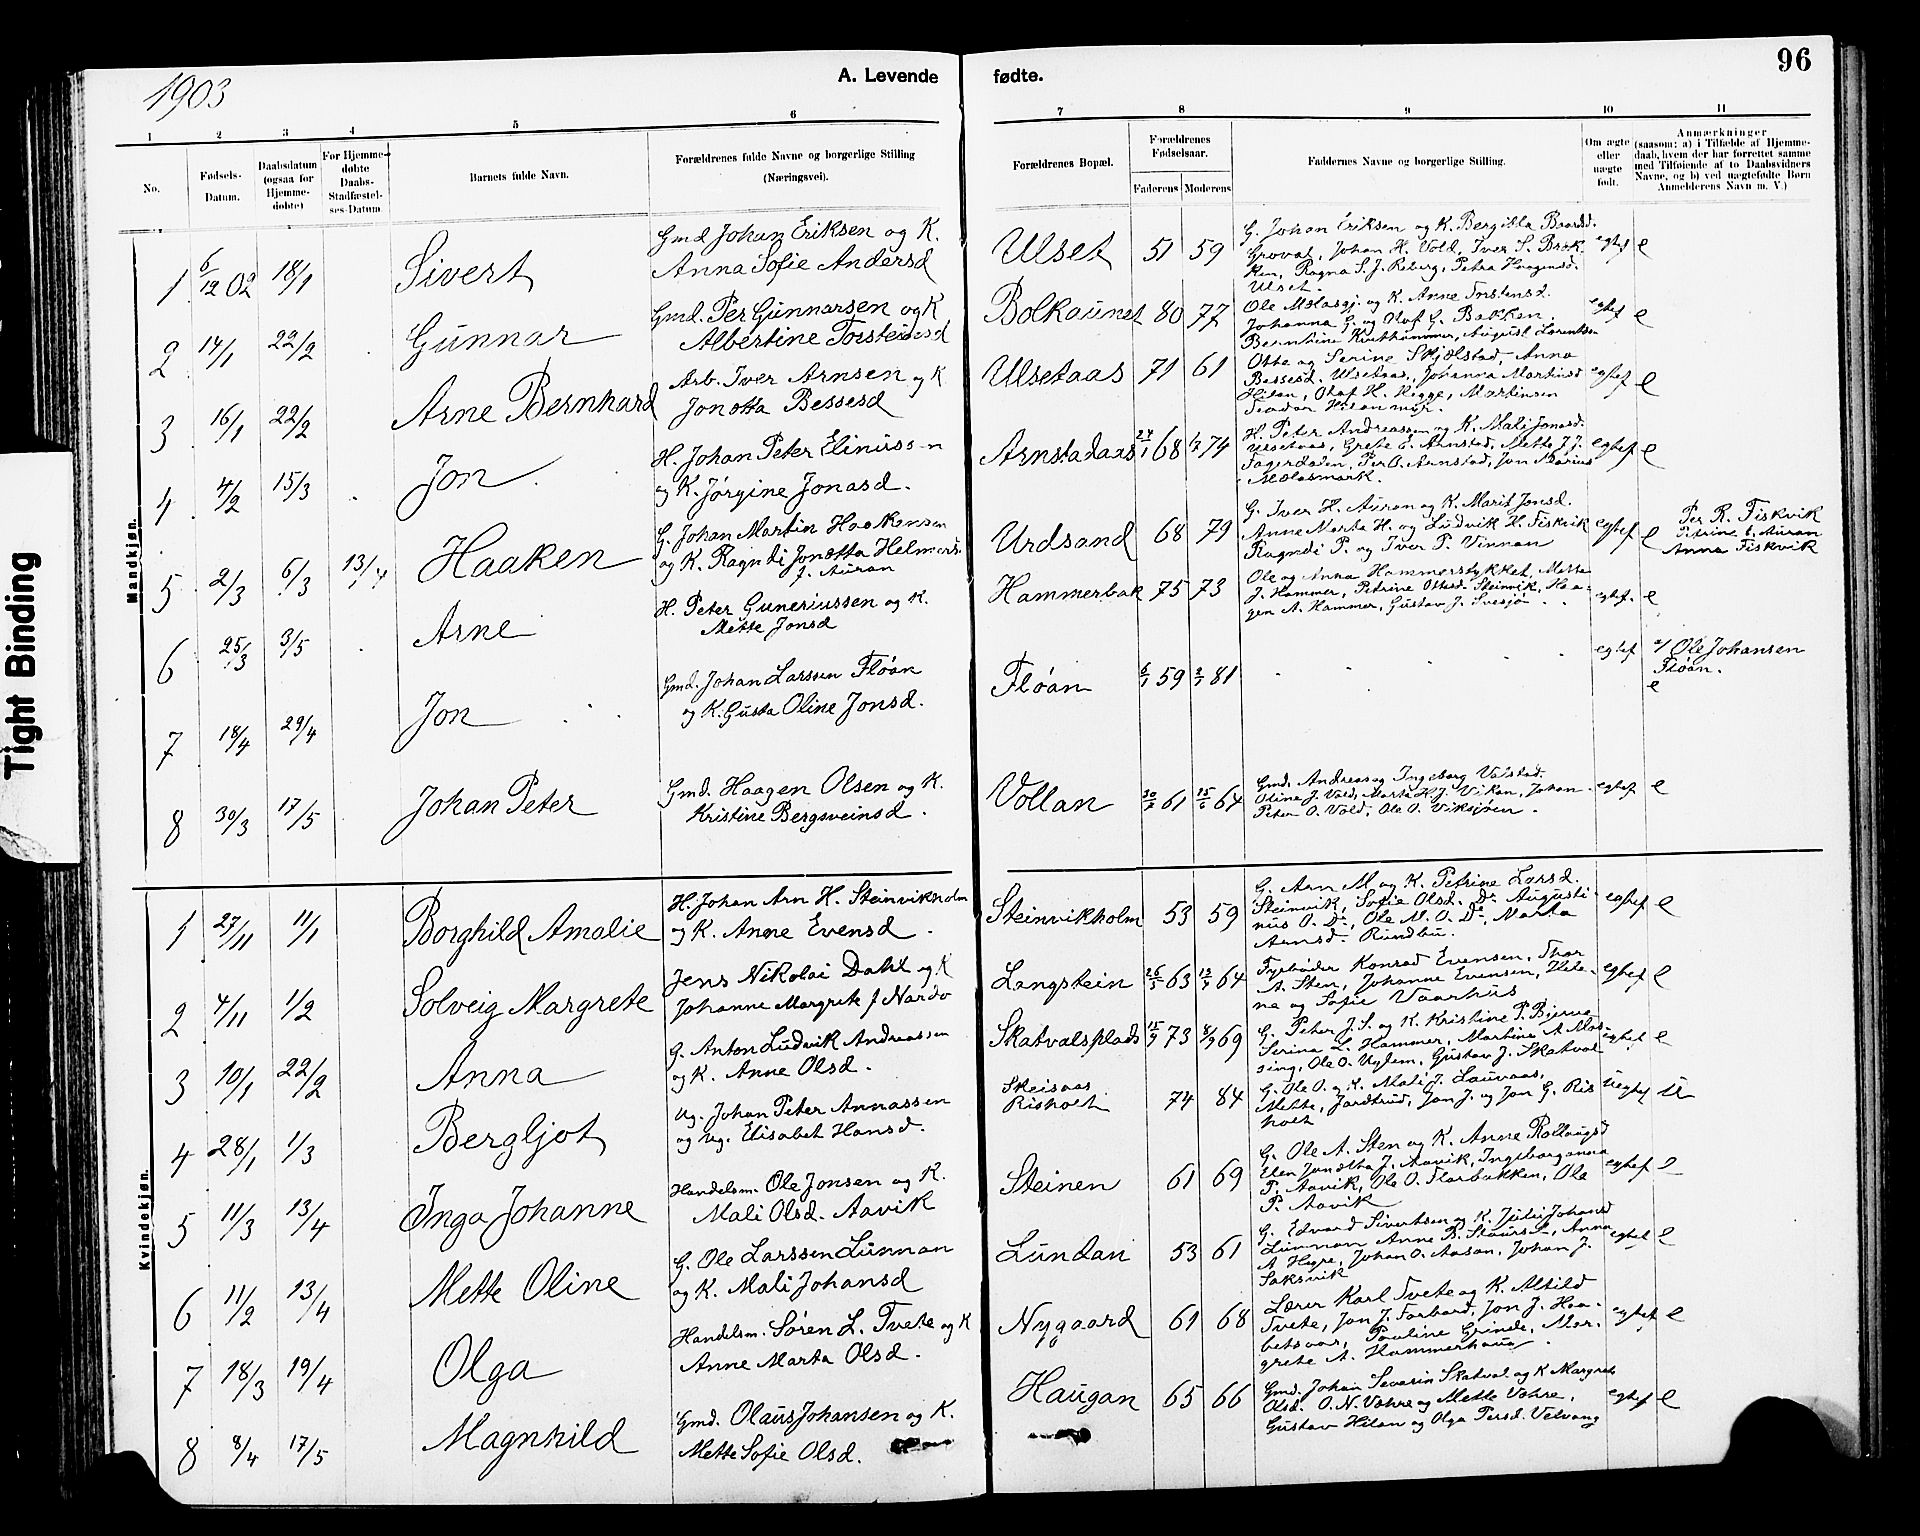 Tight Binding
1903
A. Levende fødte.
96
1 2 3 4 5 6 7 8 9 10 11
No.
Fødsels-
Datum.
Daabsdatum
(ogsaa for
Hjemme-
døbte)
For Hjemme-
døbte
Daabs-
Stadfæstel-
ses-Datum
Barnets fulde Navn.
Forældrenes fulde Navne og borgerlige Stilling
(Næringsvei).
Forældrenes Bopæl.
Forældrenes
Fødselsaar.
Faderens
Moderens
Faddernes Navne og borgerlige Stilling.
Om ægte
eller
uægte
født.
Anmærkninger
(saasom; a) i Tilfælde af Hjemme-
daab, hvem der har forrettet samme
med Tilføiende af to Daabsvidners
Navne, og b) ved uægtefødte Børn
Anmelderens Navn m. V.)
Mandkjøn.
1 6/12 02 18/1 Sivert
Gmd Johan Eriksen og K.
Anna Sofie Andersd
Ulset 51 59
G. Johan Eriksen og K. Bergitta Baardd.
Graval, Johan H. Vold, Iver S. Brek-
ken, Ragna S. J. Reberg, Petra Haagensd.
Ulset.
egtef e
2 14/1 22/2 Gunnar
Gmd. Per Gunnarsen og K
Albertine Torstensd
Bolkaunet 80 77
Ole Mælasgj. og K. Anne Torstensd.
Johanna G. og Olaf G. Bakken.
Bernhine Kvithammer, August Larentsen
egtef e
3 16/1 22/2 Arne Bernhard
Arb. Iver Arnsen og K
Jonetta Bessesd
Ulsetaas 71 61
Otte og Serine Skjelstad, Anna
Bessesd. Ulsetaas, Johanna Martinsd
Hilan, Olaf H. Hegge, Martinsen
Teodor Hilanmyr.
egtef e
4 4/2 15/3 Jon
H. Johan Peter Elinuss-n
og K. Jørgine Jonasd.
Arnstadaas 24/1 68 74
H. Peter Andreassen og K. Mali Jonasd.
Ulsetaas, Grete E. Arnstad, Mette J. J.
Fagerdalen, Per O. Arnstad, Jon Marius
Mælasmark.
egtef e
5 2/3 6/3 13/4 Haaken
G. Johan Martin Haakensen
og K. Ragndi Jonetta Helmers.
f. Auran
Urdsand 68 79
G. Iver H. Auran og K. Marit Jonsd.
Anne Marta H. og Ludvik H. Fiskvik
Ragndi P. og Iver P. Vinnan
egtef e
Per R. Fiskvik
Petrine t. Auran
Anna Fiskvik
6 25/3 3/5 Arne
H. Peter Guneriussen og K.
Mette Jonsd
Hammerbak 75 73
Ole og Anna Hammerstykket, Mette
J. Hammer, Petrine Ottesd. Steinvik, Haa-
gen A. Hammer, Gustav J. Svesjø
egtef. e
7 18/4 29/4 Jon
Gmd. Johan Larssen Fløan
og K. Gusta Oline Jonsd.
Fløan 6/1 59 2/1 81
egtef
a/ Ole Johansen
Fløan.
e
8 30/3 17/5 Johan Peter
Gmd. Haagen Olsen og K.
Kristine Bergsveinsd.
Vollan 61 15/6 64
Gmd. Andreas og Ingeborg Valstad.
Oline J. Vold, Marta H. J. Vikan, Johan
Peter O. Vold, Ole O. Viksjøen.
egtef e
Kvindekjøn.
1 27/11 11/1 Borghild Amalie
H. Johan Arn H. Steinvikholm
og K. Anne Evensd.
Steinvikholm 53 59
G. Arn M og K. Petrine Larsd.
Steinvik, Sofie Olsd. Do Augusti-
nus O. Do, Ole M. O. Do, Marta
Arnsd. Rundbu.
egtef e
2 4/11 1/2 Solveig Margrete
Jens Nikolai Dahl og K
Johanne Margrete f Nardo
Langstein 26/5 63 64
Fyrbøder Konrad Evensen, Thor
A. Sten, Johanne Evensen, Hele-
ne og Sofie Vaarhus
egtef e
3 10/1 22/2 Anna
G. Anton Ludvik Andreassen
og K. Anne Olsd.
Skatvalsplads 15/9 73 8/9 69
G. Peter J. S. og K. Kristine P. Bjerve
Serina L. Hammer, Martine A Mæs-
sing, Ole O. Uglem, Gustav J. Skatval
egtef e
4 28/1 1/3 Bergljot
Ug. Johan Peter Annassen
og ug. Elisabet Hansd.
Skeisaas
Risholt 74 84
G. Ole O. og K. Mali J. Lauvaas,
Mette, Jardtrud, Jon J. og Jon G. Ris
holt
uegtef u
5 11/3 13/4 Inga Johanne
Handelsm. Ole Jonsen og K.
Mali Olsd. Aavik
Steinen 61 69
G. Ole A. Sten og K. Anne Rollaugsd
Elen Jonetta J. Aavik, Ingeborganna
P. Aavik, Ole O. Florbakken, Ole
P. Aavik
egtef e
6 11/2 13/4 Mette Oline
G. Ole Larssen Lunnan
og K. Mali Johansd
Lundan 53 61
G. Edvard Sivertsen og K. Julie Johansd
Lunnan Anne B. Staurset, Anna
A Hegre, Johan O. Aasan, Johan J.
Saksvik
egtef e
7 18/3 19/4 Olga
Handelsm. Søren L. Tvete og K
Anne Marta Olsd.
Nygaard 61 68
Lærer Karl Tvete og K. Altild
Tvete, Jon J. Forbord, Jon J. Haa-
betsvar, Pauline Grinde, Mar-
grete A. Hammerhaug
egtef e
8 8/4 17/5 Magnhild
Gmd. Olaus Johansen og K.
Mette Sofie Olsd.
Haugan 65 66
Gmd. Johan Severin Skatval og K Margrete
Olsd. O. N. Vøhre og Mette Vøhre,
Gustav Hilan og Olga Persd. Velvang
egtef e